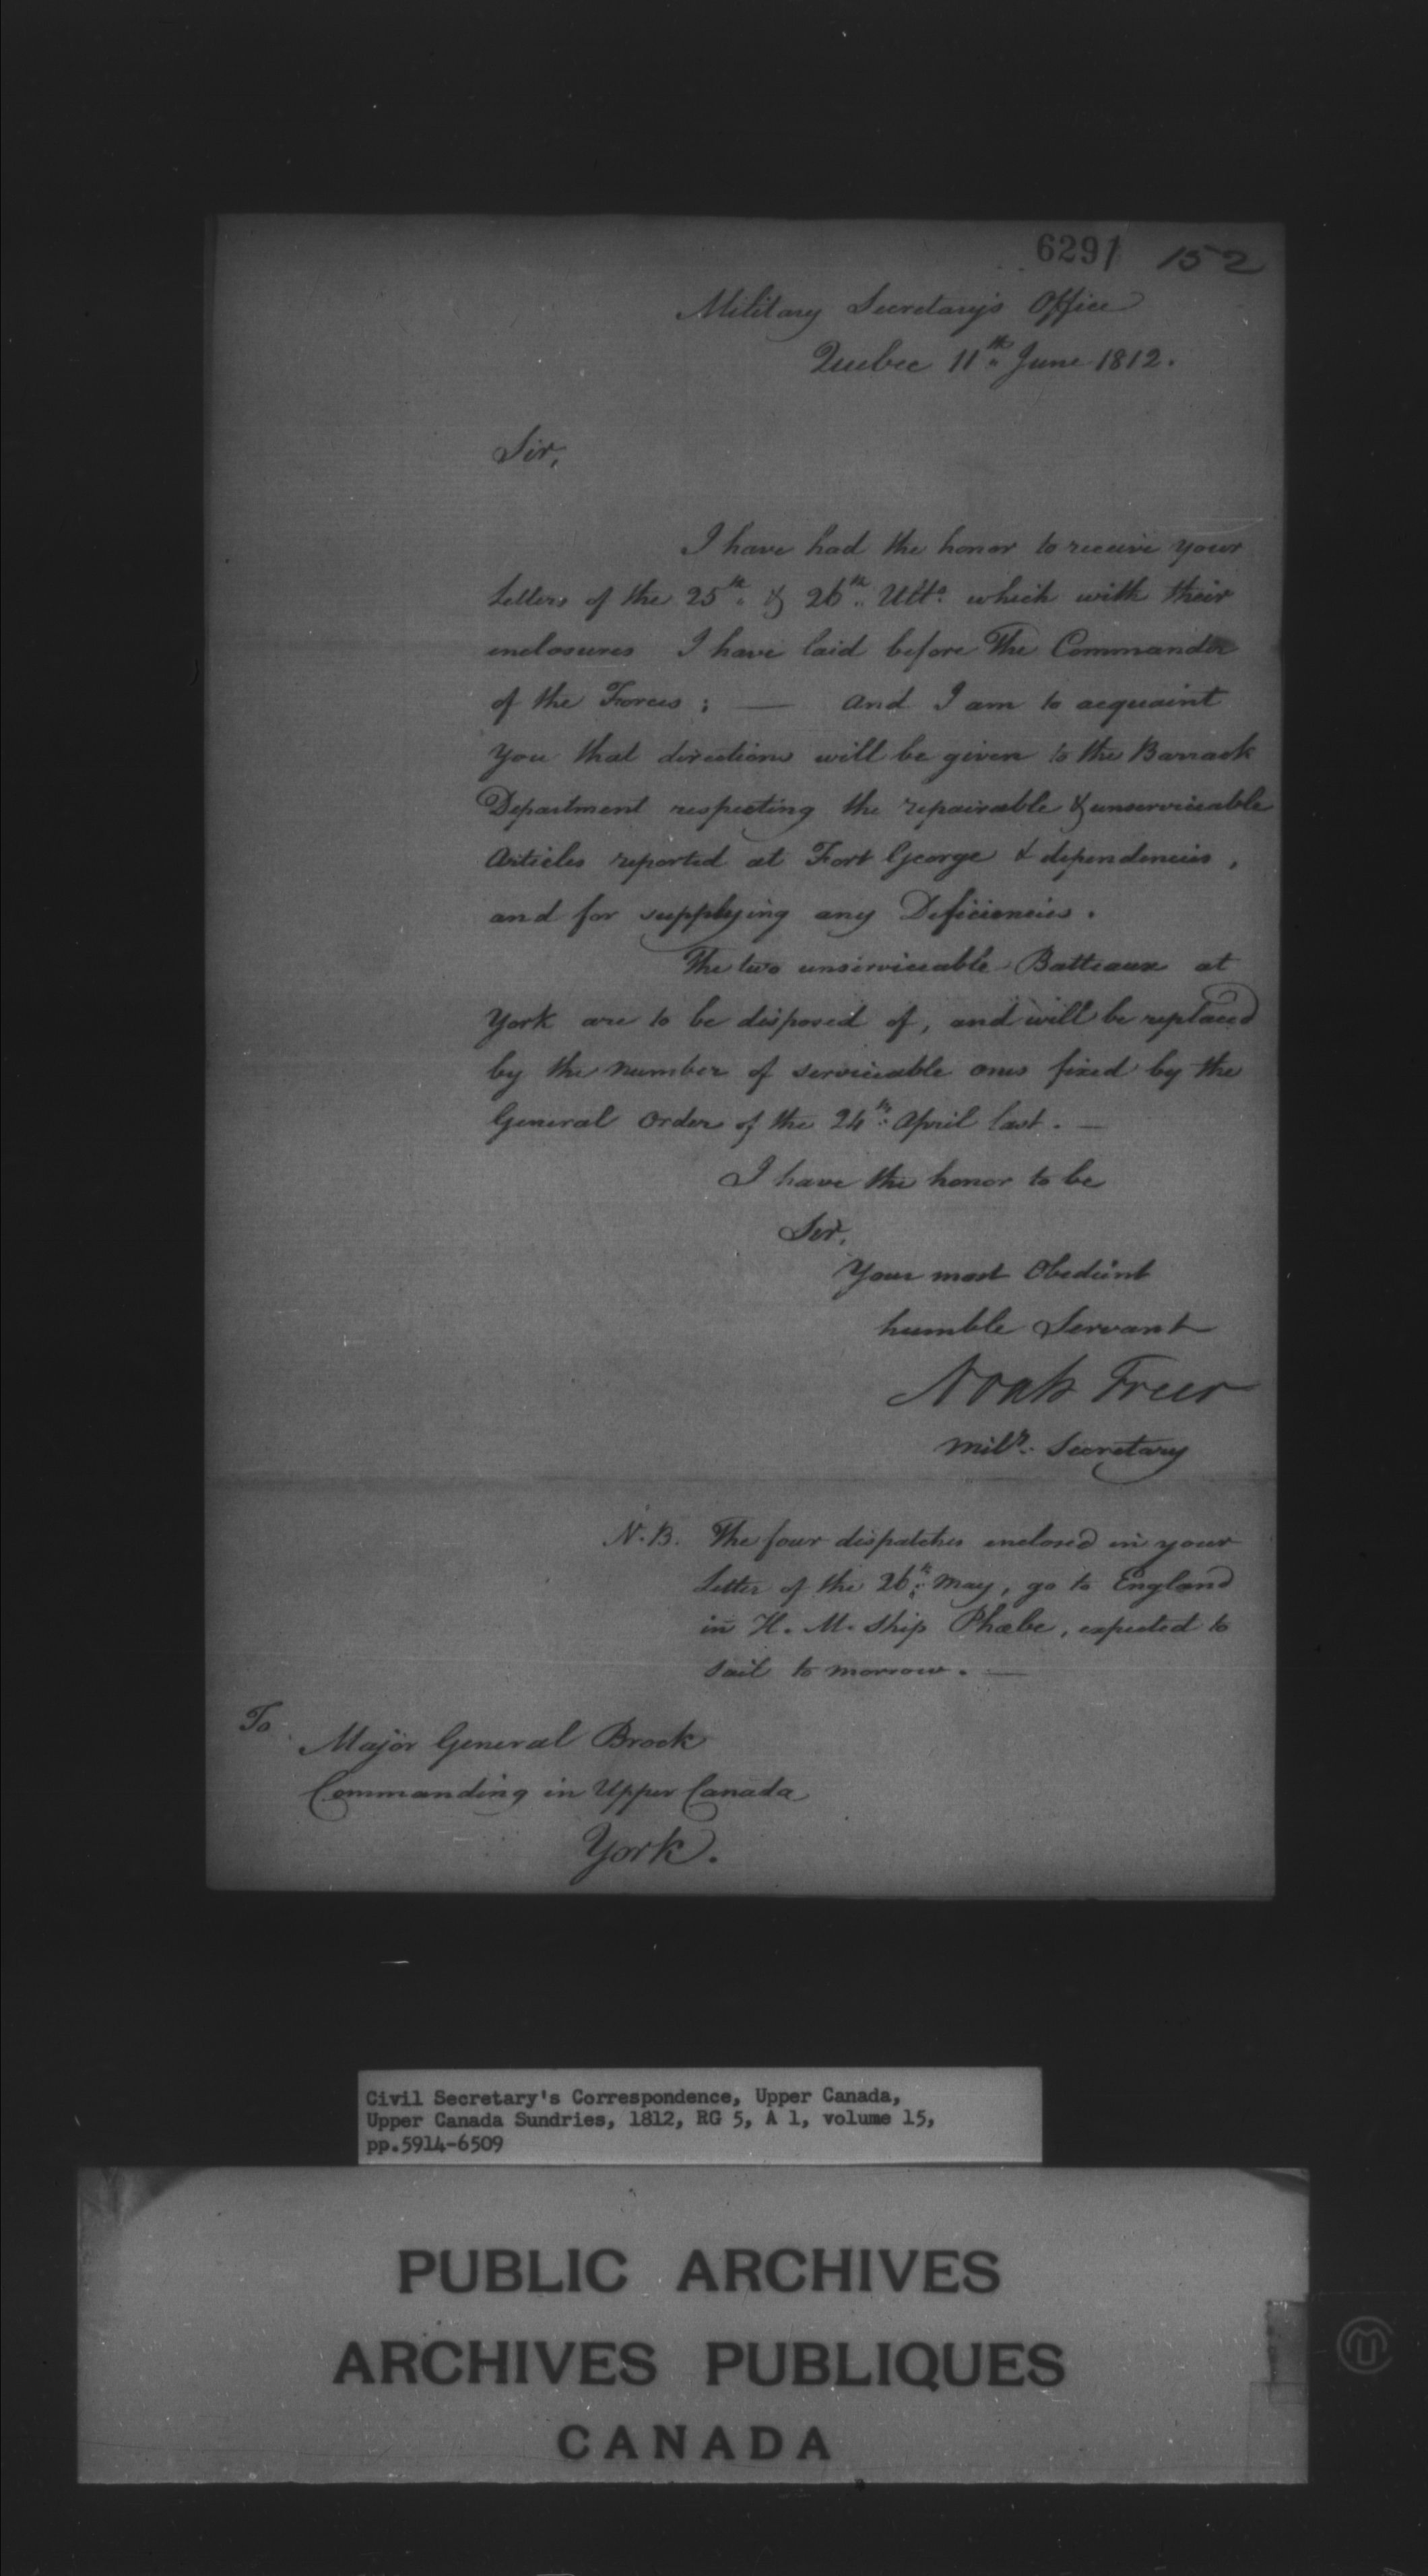 6291 152
Military Secretary's Office
Quebec 11th June 1812.
Sir,
I have had the honor to receive your
Letters of the 25th & 26th Ulto. which with their
enclosures I have laid before The Commander
of the Forces ; — and I am to acquaint
You that directions will be given to the Barrack
Department respecting the repairable & unserviceable
Articles reported at Fort George & dependencies ,
and for supplying any Deficiencies .
The two unserviceable Batteaux at
York are to be disposed of, and will be replaced
by the number of serviceable ones fixed by the
General Order of the 24th April last . —
I have the honor to be
Sir,
Your most Obedient
humble Servant
Noah Freer
Mily. Secretary
N.B. The four dispatches enclosed in your
Letter of the 26th May, go to England
in H. M. Ship Phœbe, expected to
sail to morrow . —
To
Major General Brock
Commanding in Upper Canada
York .
Civil Secretary's Correspondence, Upper Canada,
Upper Canada Sundries, 1812, RG 5, A 1, volume 15,
pp.5914-6509
PUBLIC ARCHIVES
ARCHIVES PUBLIQUES
CANADA